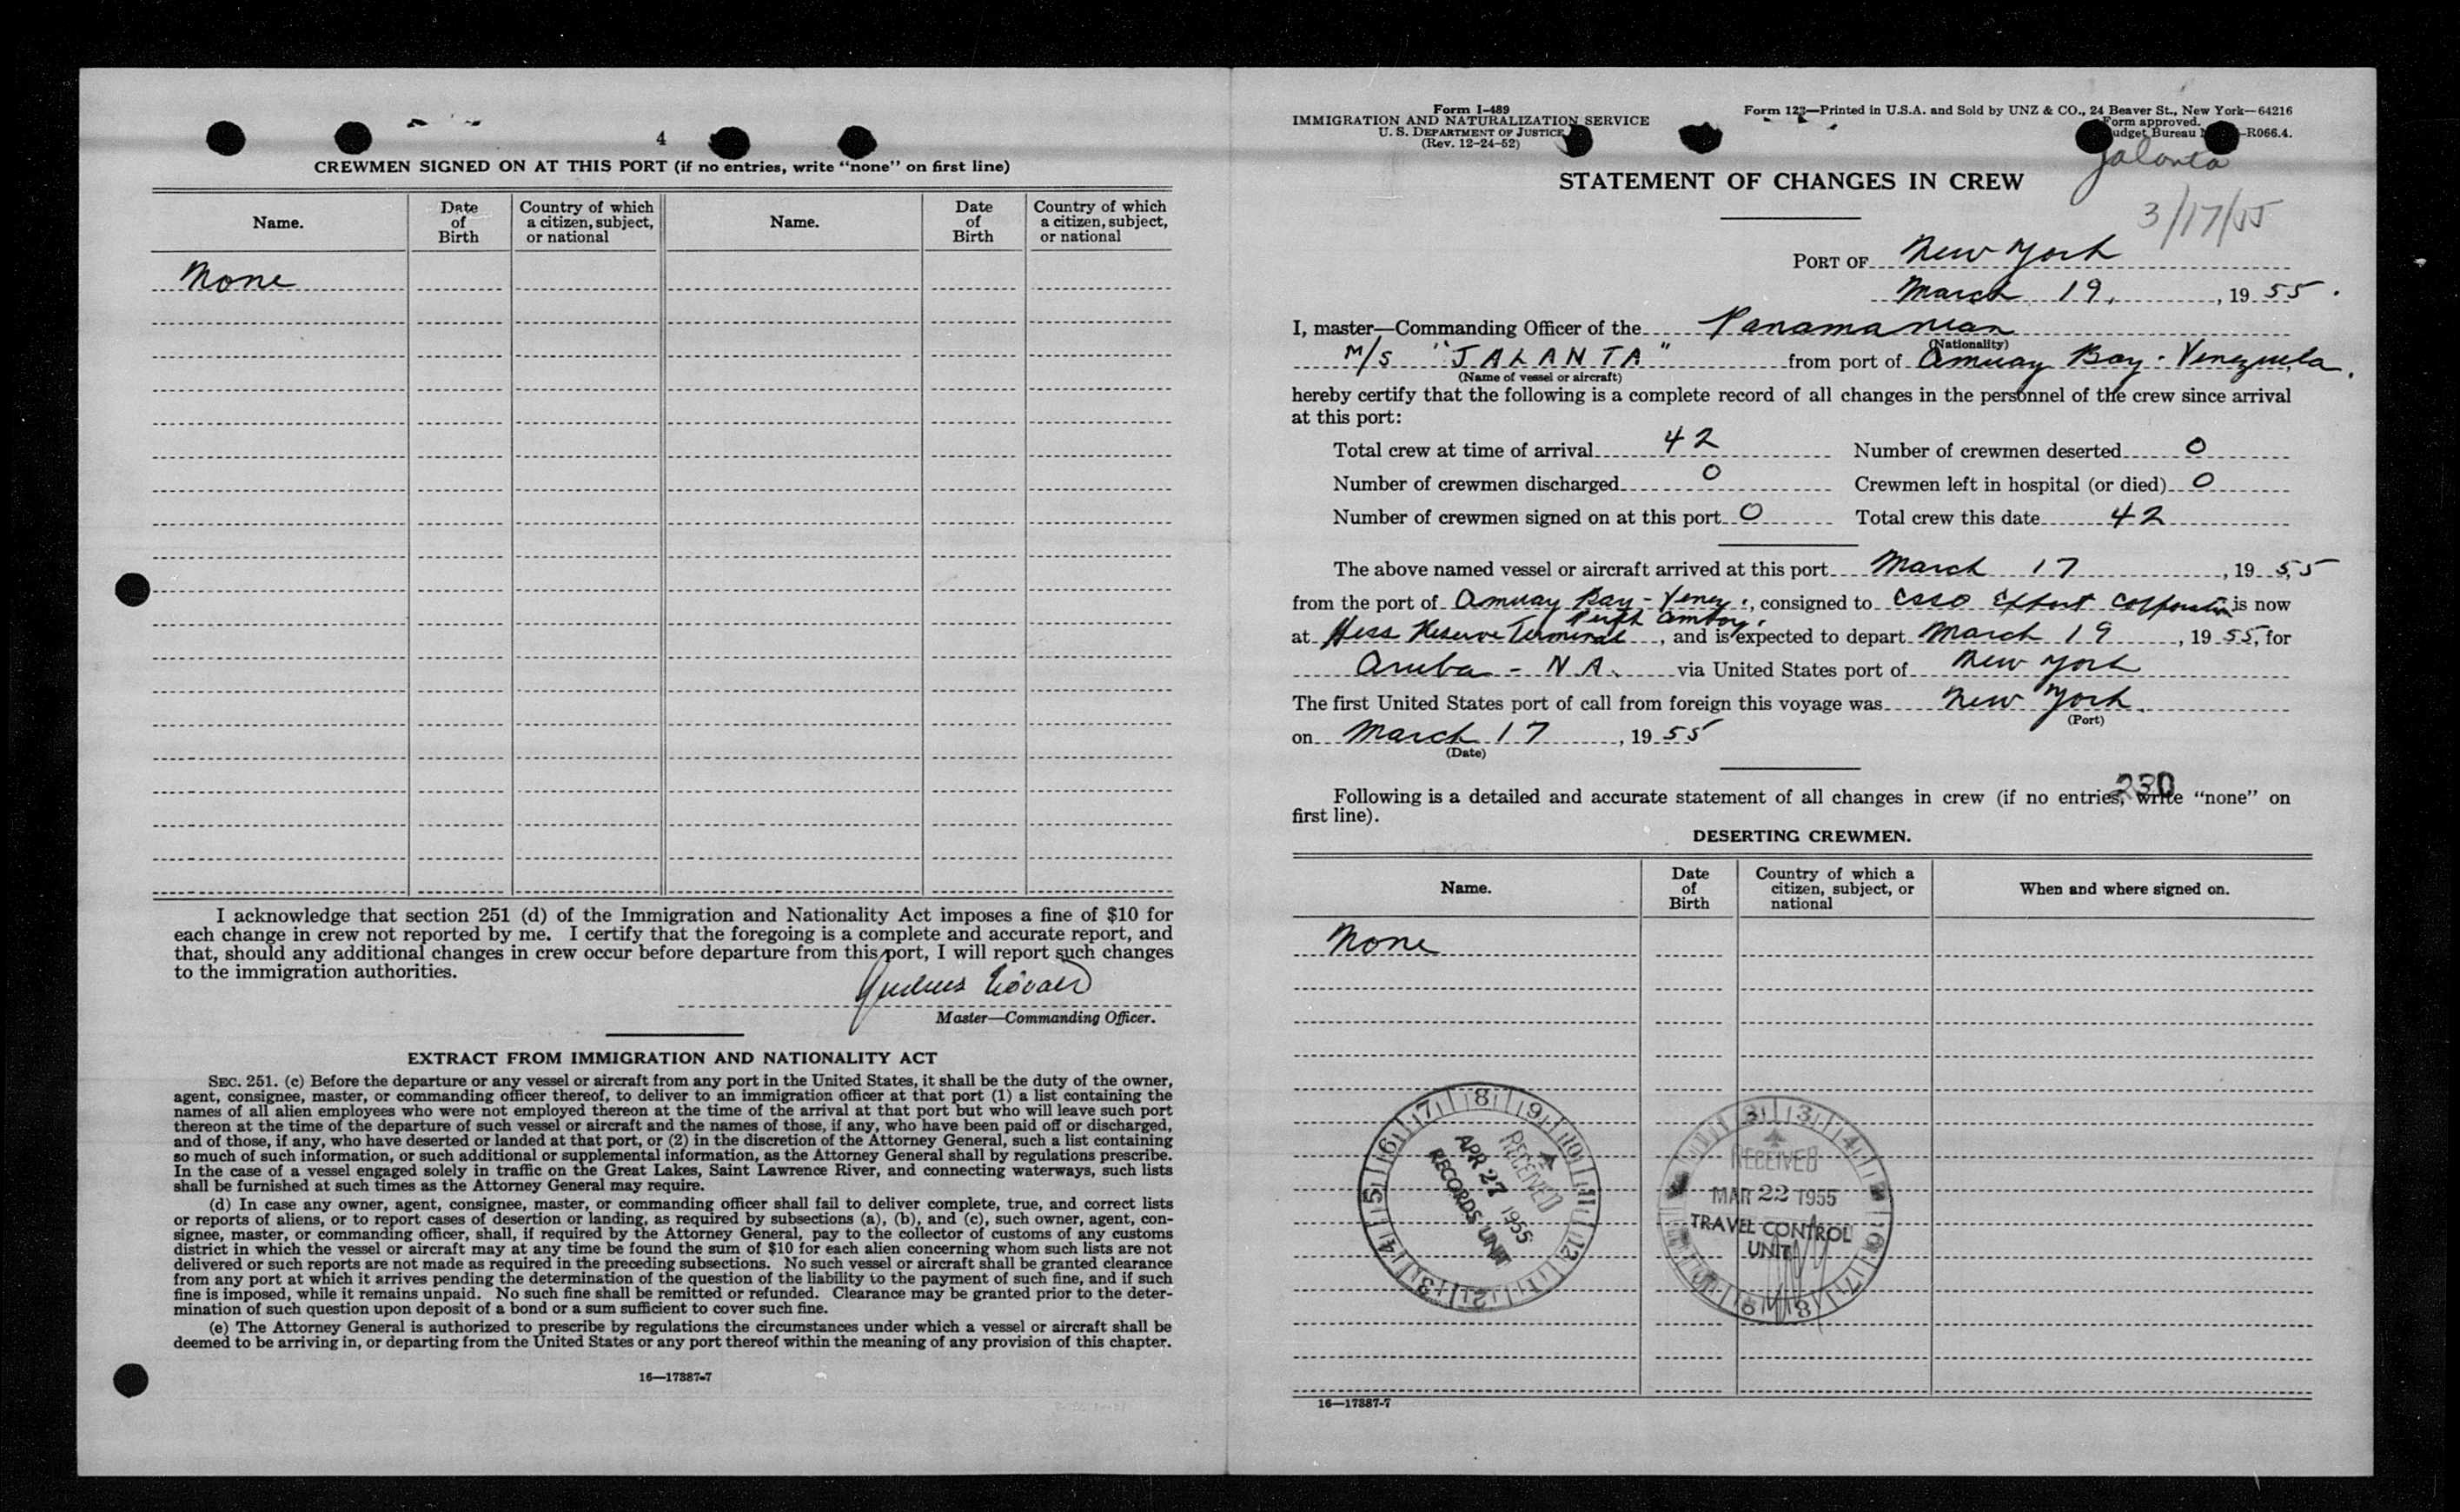 4
CREWMEN SIGNED ON AT THIS PORT (if no entries, write "none" on first line)
Name. Date of Birth Country of which a citizen, subject, or national Name. Date of Birth Country of which a citizen, subject, or national
None
I acknowledge that section 251 (d) of the Immigration and Nationality Act imposes a fine of $10 for
each change in crew not reported by me. I certify that the foregoing is a complete and accurate report, and
that, should any additional changes in crew occur before departure from this port, I will report such changes
to the immigration authorities.
Master—Commanding Officer.
EXTRACT FROM IMMIGRATION AND NATIONALITY ACT
SEC. 251. (c) Before the departure or any vessel or aircraft from any port in the United States, it shall be the duty of the owner,
agent, consignee, master, or commanding officer thereof, to deliver to an immigration officer at that port (1) a list containing the
names of all alien employees who were not employed thereon at the time of the arrival at that port but who will leave such port
thereon at the time of the departure of such vessel or aircraft and the names of those, if any, who have been paid off or discharged,
and of those, if any, who have deserted or landed at that port, or (2) in the discretion of the Attorney General, such a list containing
so much of such information, or such additional or supplemental information, as the Attorney General shall by regulations prescribe.
In the case of a vessel engaged solely in traffic on the Great Lakes, Saint Lawrence River, and connecting waterways, such lists
shall be furnished at such times as the Attorney General may require.
(d) In case any owner, agent, consignee, master, or commanding officer shall fail to deliver complete, true, and correct lists
or reports of aliens, or to report cases of desertion or landing, as required by subsections (a), (b), and (c), such owner, agent, con-
signee, master, or commanding officer, shall, if required by the Attorney General, pay to the collector of customs of any customs
district in which the vessel or aircraft may at any time be found the sum of $10 for each alien concerning whom such lists are not
delivered or such reports are not made as required in the preceding subsections. No such vessel or aircraft shall be granted clearance
from any port at which it arrives pending the determination of the question of the liability to the payment of such fine, and if such
fine is imposed, while it remains unpaid. No such fine shall be remitted or refunded. Clearance may be granted prior to the deter-
mination of such question upon deposit of a bond or a sum sufficient to cover such fine.
(e) The Attorney General is authorized to prescribe by regulations the circumstances under which a vessel or aircraft shall be
deemed to be arriving in, or departing from the United States or any port thereof within the meaning of any provision of this chapter.
16—17887-7
Form I-489
IMMIGRATION AND NATURALIZATION SERVICE
U. S. DEPARTMENT OF JUSTICE
(Rev. 12-24-52)
Form 122—Printed in U.S.A. and Sold by UNZ & CO., 24 Beaver St., New York—64216
Form approved.
udget Bureau -R066.4.
Jalanta
3/17/55
STATEMENT OF CHANGES IN CREW
PORT OF New York
March 19, , 19 55.
I, master—Commanding Officer of the Panamanian
(Nationality)
M/S "JALANTA" from port of Amuay Bay - Venezuela.
(Name of vessel or aircraft)
hereby certify that the following is a complete record of all changes in the personnel of the crew since arrival
at this port:
Total crew at time of arrival 42 Number of crewmen deserted 0
Number of crewmen discharged 0 Crewmen left in hospital (or died) 0
Number of crewmen signed on at this port 0 Total crew this date 42
The above named vessel or aircraft arrived at this port March 17 , 19 55
from the port of Amuay Bay - Venez., consigned to Esso Export Corporation is now
at Hess Reserve Terminal Perth Amboy, and is expected to depart March 19 , 19 55, for
Aruba - N.A. via United States port of New York
The first United States port of call from foreign this voyage was New York.
(Port)
on March 17 , 19 55
(Date)
230
Following is a detailed and accurate statement of all changes in crew (if no entries, write "none" on
first line).
DESERTING CREWMEN.
Name. Date of Birth Country of which a citizen, subject, or national When and where signed on.
None
7 8 9 10 11 12 1 2 3 4 5 6
RECEIVED
APR 27 1955
RECORDS UNIT
RECEIVED
MAR 22 1955
TRAVEL CONTROL
UNIT
16—17887-7